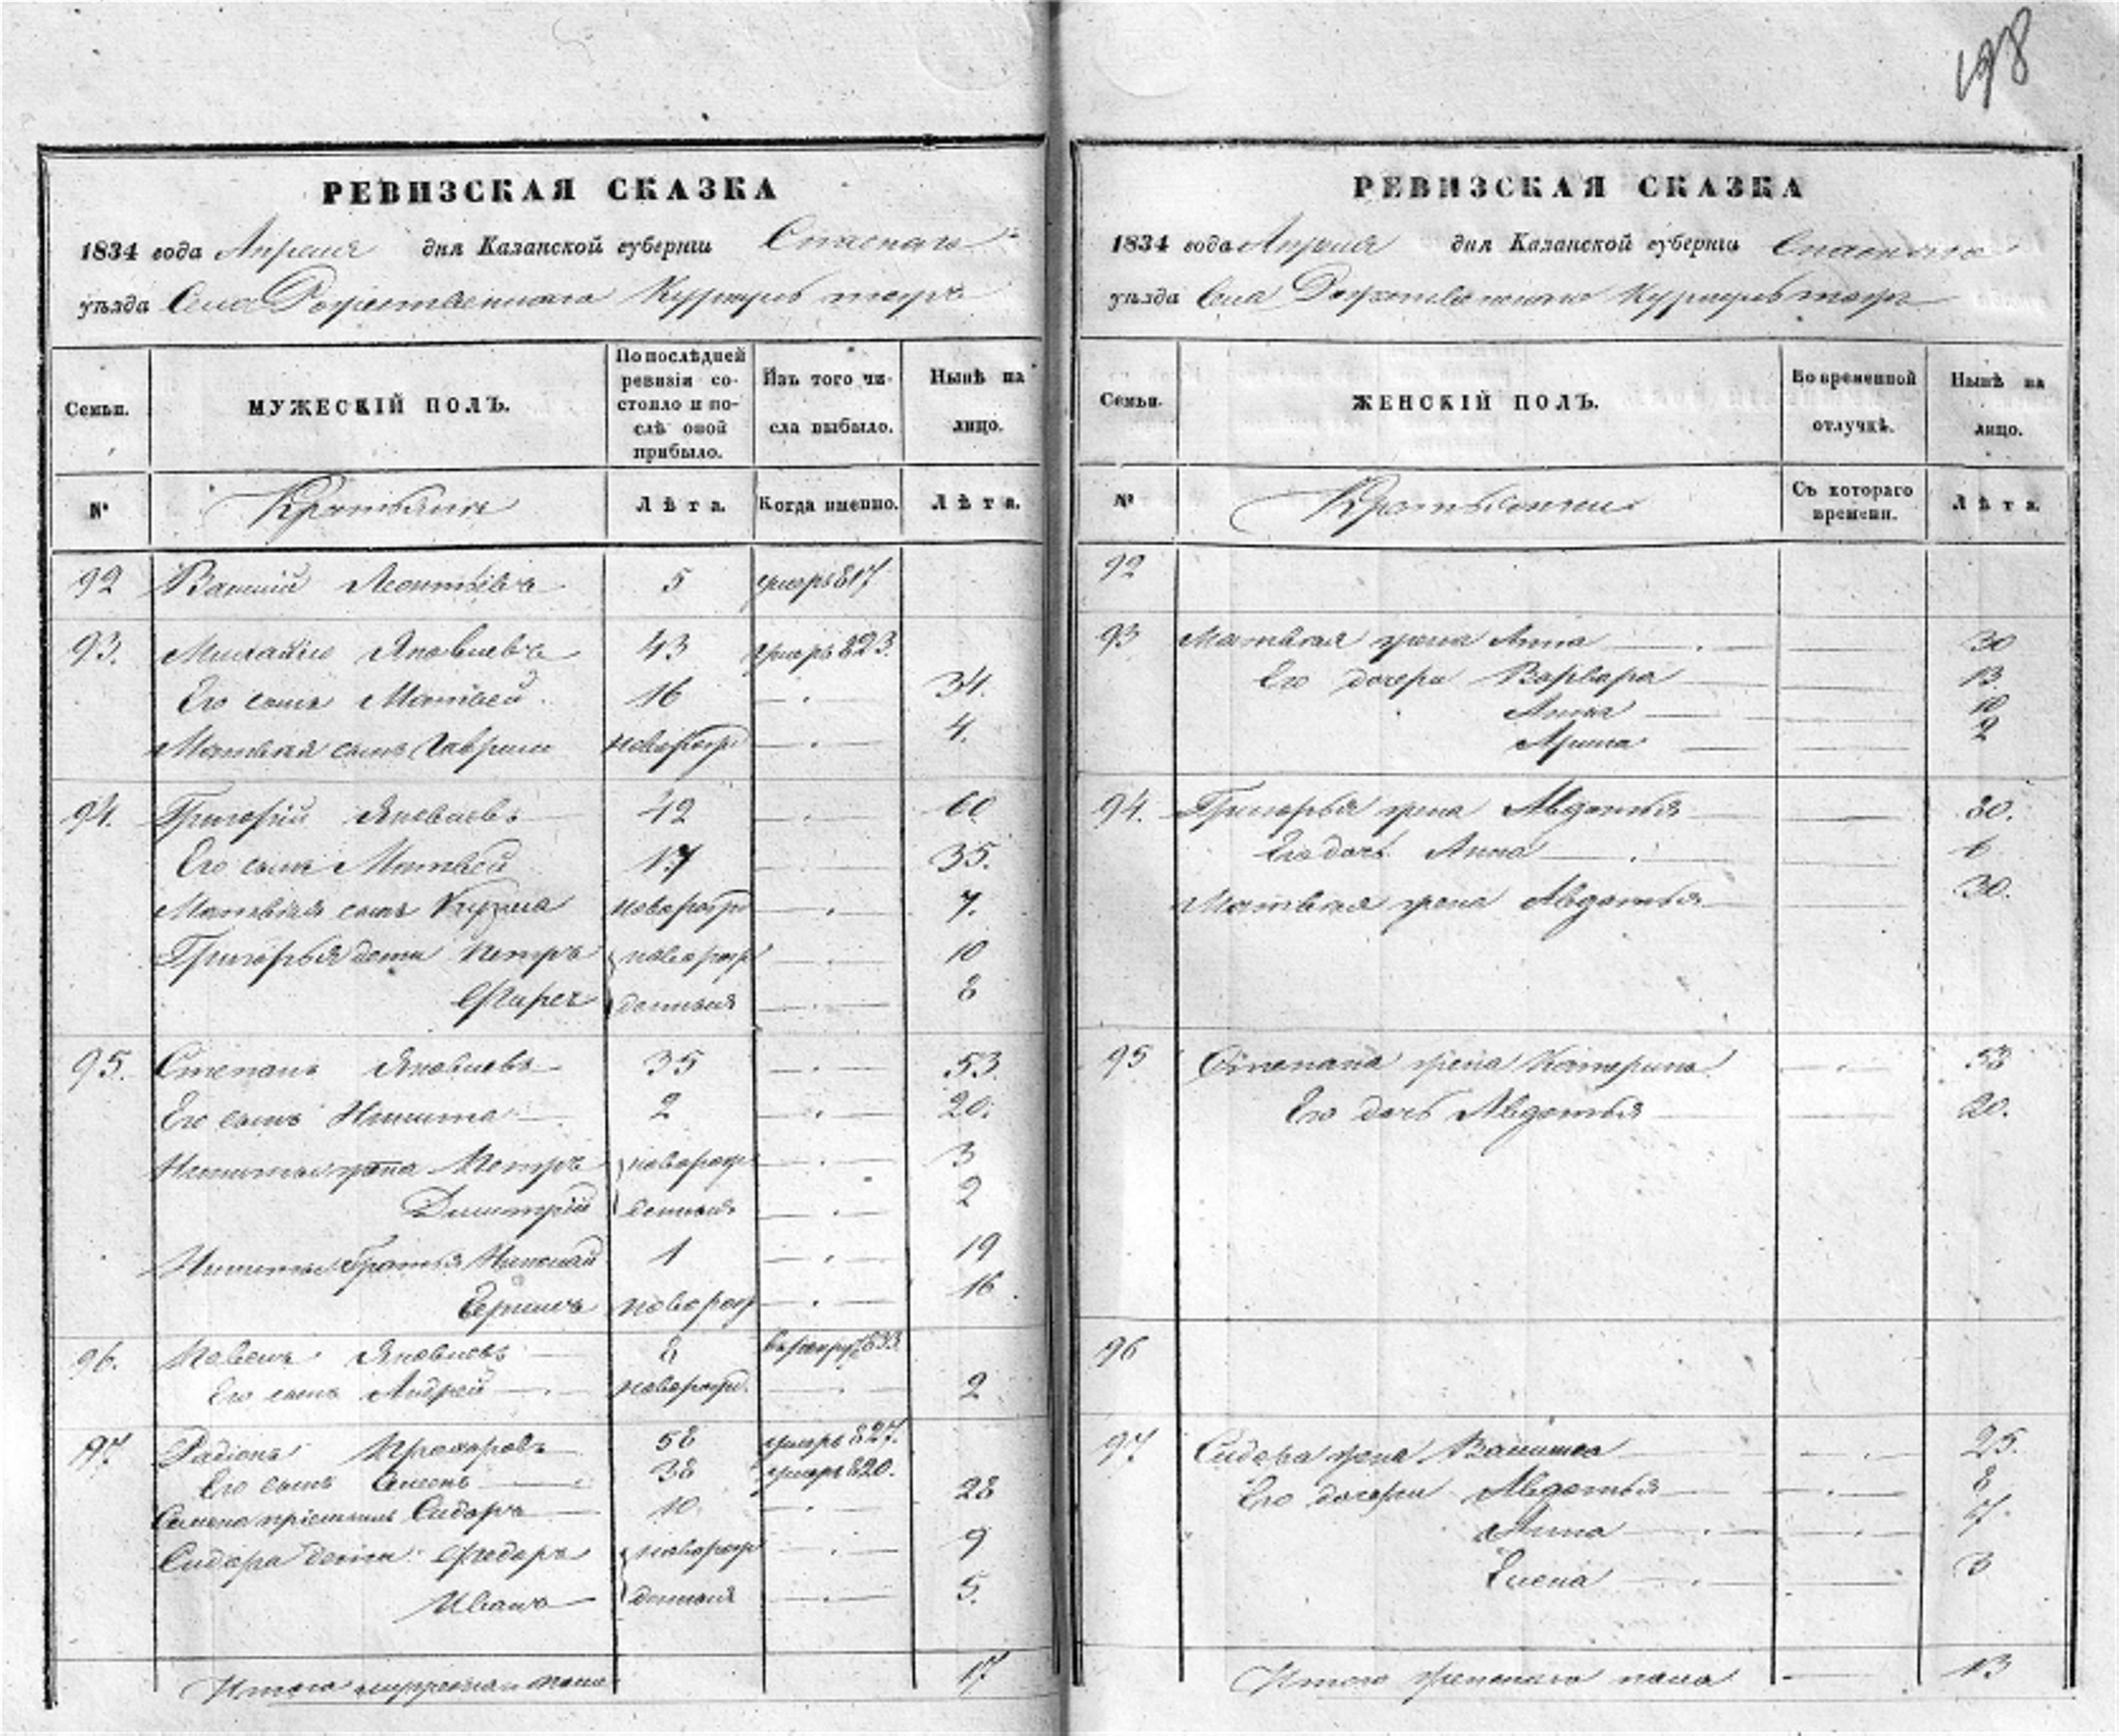 198
РЕВИЗСКАЯ СКАЗКА
1834 года Апреля дня Казанской губерніи Спаскаго
уѣзда Села Рожественнаго
Семьи.
МУЖЕСКІЙ ПОЛЪ.
По послѣдней ревизіи состояло и послѣ оной прибыло.
Изъ того числа выбыло.
Нынѣ на лицо.
№
Крестьяне
Лѣта.
Когда именно.
Лѣта.
92 Василій Леонтьевъ 5 умеръ 817
93. Михайло Яковлевъ 43 умеръ 823.
Его сынъ Матвей 16 34.
Матвея сынъ Гаврила новорожд 4.
94. Григорій Яковлевъ 42 60
Его сынъ Матвей 17 35.
Матвея сынъ Кузма новорожд 7.
Григорья дети Петръ новорож 10
денныя 8
95. Степанъ Яковлевъ 35 53
Его сынъ Никита 2 20.
Никиты Петръ новорож 3
Димитрій денныя 2
Никиты братья Николай 1 19
новорожд 16
96. Яковлевъ 8 въ рекруты 833
Его сынъ Андрей новорожд. 2
97. Радіонъ Прохоровъ 58 умеръ 827.
Его сынъ 38 умеръ 820.
Семена пріемышъ Сидоръ 10 28
Сидора дети Федоръ новорож 9
Иванъ денныя 5.
Итого мужеска пола 17
РЕВИЗСКАЯ СКАЗКА
1834 года Апреля дня Казанской губерніи Спаскаго
уѣзда Села Рожественнаго
Семьи.
ЖЕНСКІЙ ПОЛЪ.
Во временной отлучкѣ.
Нынѣ на лицо.
№
Съ котораго времени.
Лѣта.
92
93 Матвея жена Анна 30
Его дочери Варвара 13
Анна 10
Арина 2
94. Григорья жена Авдотья
Его дочь Анна 6
Матвея жена Авдотья 30.
95 Степана жена Катерина 53
Его дочь Авдотья 20.
96
97 Сидора жена Василиса 25.
Его дочери Авдотья 8
Анна 7.
Елена 3
Итого женскаго пола 13